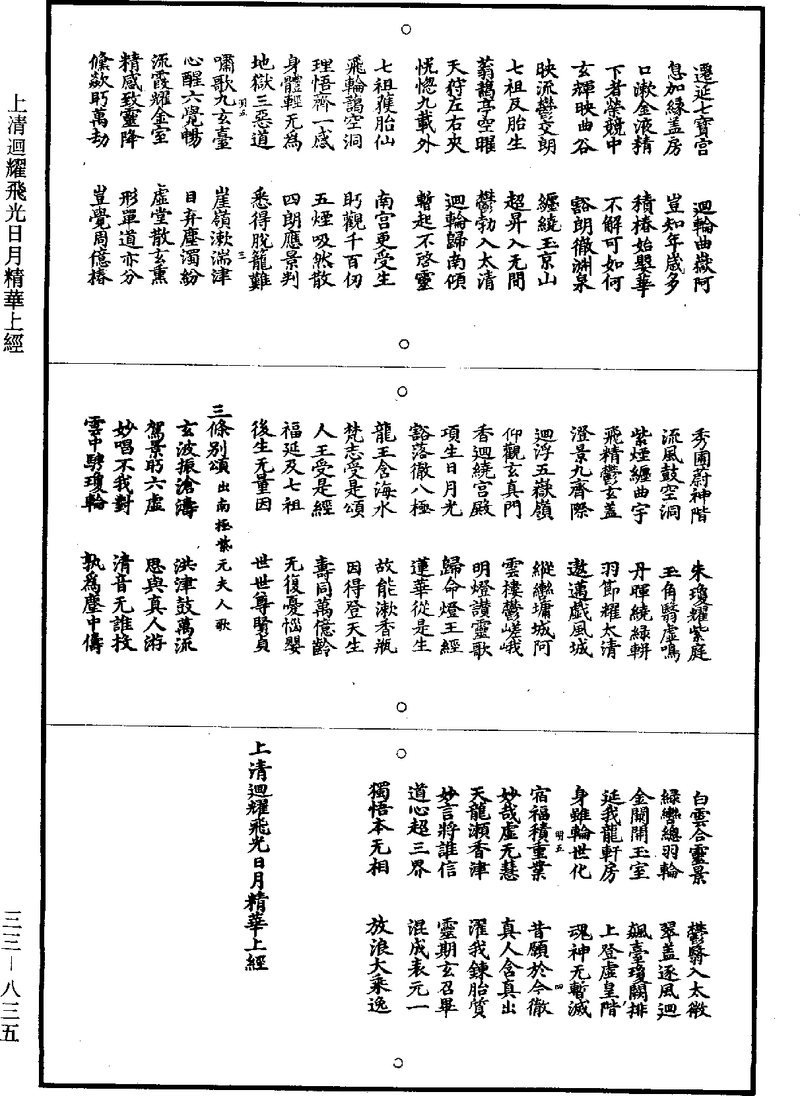 上清迴耀飛光日月精華上經
三三—八三五
遷延七寶宮　迴輪曲嶽阿
息加緣蓋房　豈知年歲多
口漱金液精　積椿始嬰華
下者榮競中　不解可如何
玄輝映曲谷　豁朗徹淵泉
映流鬱交朗　纏繞玉京山
七祖及胎生　超昇入无間
蓊鵝亭空曜　鬱勃入太清
天符左右夾　迴輪歸南傾
恍惚九載外　暫起不啓靈
七祖獲胎仙　南宮更受生
飛輪藹空洞　眄觀千百仞
理悟齊一感　五煙吸然散
身體輕无為　四朗應景判
地獄三惡道　悉得脫籠難
明五　三
嘯歌九玄臺　崖嶺漱湍津
心醒六覺暢　目弃塵濁紛
流霞耀金室　虛堂散玄熏
精感致靈降　形單道亦分
儵歘眄萬劫　豈覺周億椿
秀圃蔚神階　朱瓊耀紫庭
流風鼓空洞　玉角翳虛鳴
紫煙纏曲宇　丹暉繞綠軿
飛精鬱玄蓋　羽節耀太清
澄景九齊際　遨邁戲風城
迴浮五嶽嶺　縱轡墉城阿
仰觀玄真門　雲樓鬱嵯峨
香迴繞宮殿　明燈讚靈歌
項生日月光　歸命燈王經
豁落徹八極　蓮華從是生
龍王含海水　故能漱香瓶
梵志受是頌　因得登天生
人王受是經　壽同萬億齡
福延及七祖　无復憂惱嬰
後生无量因　世世尊賢貞
三條別頌出南極紫元夫人歌
玄波振滄濤　洪津鼓萬流
駕景眄六虛　思與真人游
妙唱不我對　清音无誰投
雲中騁瓊輪　孰為塵中儔
白雲合靈景　鬱翳入太微
綠轡總羽輪　翠蓋逐風迴
金闕開玉室　飆臺瓊闕排
延我龍軒房　上登虛皇階
身雖輪世化　魂神无暫滅
明五　四
宿福積重業　昔願於今徹
妙哉虛无慧　真人含真出
天龍瀨香津　濯我鍊胎質
妙言將誰信　靈期玄召畢
道心超三界　混成表元一
獨悟本无相　放浪大乘逸
上清迴耀飛光日月精華上經